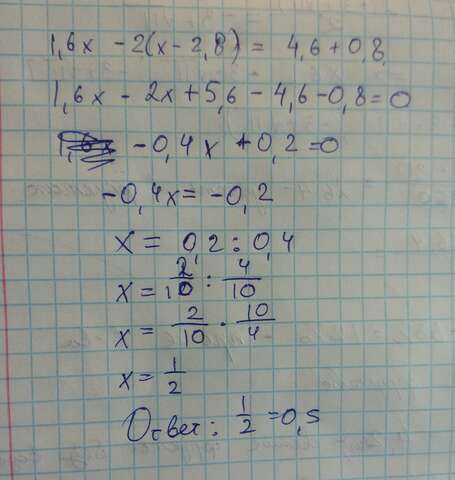 1,6x - 2(x - 2,8) = 4,6 + 0,8
1,6x - 2x + 5,6 - 4,6 - 0,8 = 0
-0,4x + 0,2 = 0
-0,4x = -0,2
x = 0,2 : 0,4
x = 2/10 : 4/10
x = 2/10 · 10/4
x = 1/2
Ответ: 1/2 = 0,5